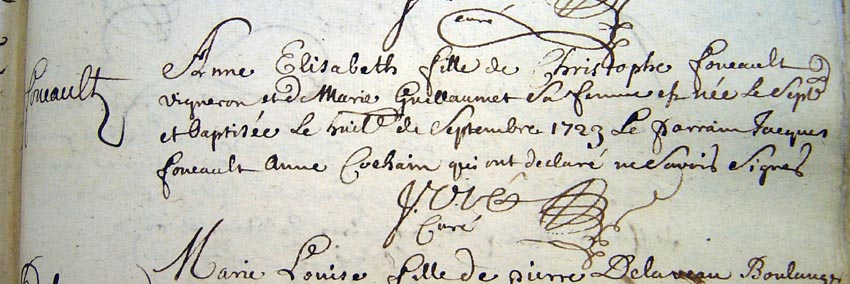 curé
foucault
Anne Elisabeth fille de Christophe foucault
vigneron et de Marie Guillaumet sa femme est née le sept
et baptisée le huit de Septembre 1723 Le parrain Jacques
foucault Anne Cochain qui ont declaré ne savoir signer
Curé
Marie Louise fille de pierre Delaveau Boulanger